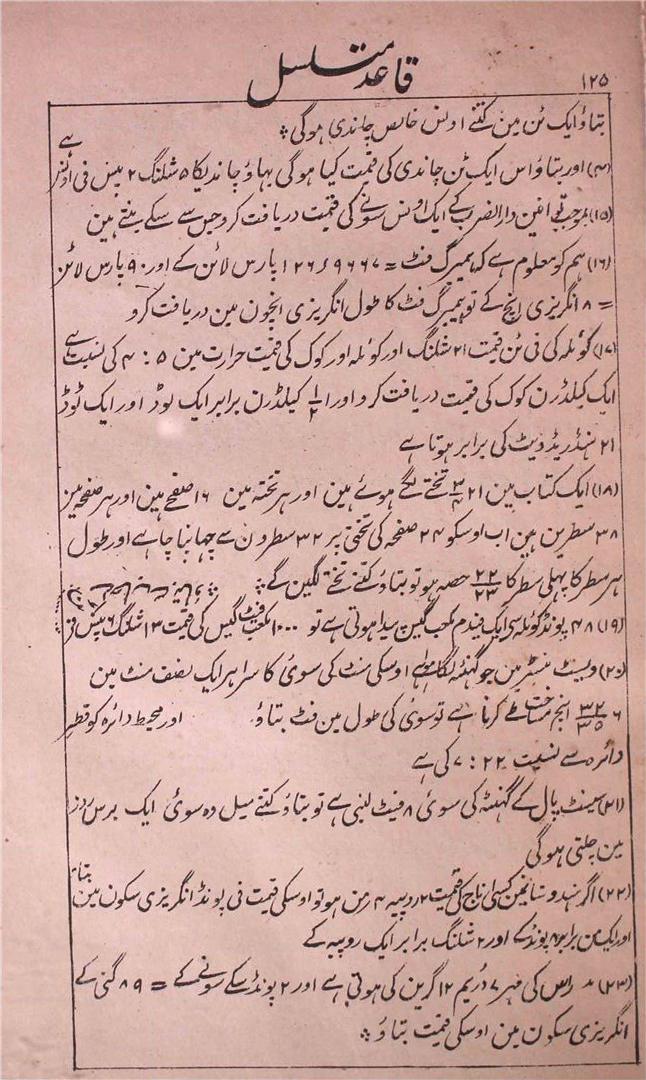 ۱۲۵
قاعدہ متسلسل
بتاؤ ایک ٹن مین کتنے اونس خالص چاندی ہوگی
(۱۴) اور بتاؤ اس ایک ٹن چاندی کی قیمت کیا ہوگی بھاؤ چاندیکا ۵ شلنگ ۲ پنس فی اونس ہے
(۱۵) بموجب قوانین دارالضرب کے ایک اونس سونے کی قیمت دریافت کرو جس سے سکے بنتے ہین
(۱۶) ہم کو معلوم ہے کہ ہمبرگ فٹ = ۱۲۶٫۹۶۶۷ پارس لائن کے اور ۹۰ پارس لائن
= ۸ انگریزی انچ کے تو ہمبرگ فٹ کا طول انگریزی انچون مین دریافت کرو
(۱۷) کوئلہ کی فی ٹن قیمت ۲۱ شلنگ اور کوئلہ اور کوک کی قیمت حرارت مین ۵ : ۴ کی نسبت ہے
ایک کیلڈرن کوک کی قیمت دریافت کرو اور ۱/۲ کیلڈرن برابر ایک لوڈ اور ایک لوڈ
۲۱ ہنڈریڈ ویٹ کی برابر ہوتا ہے
(۱۸) ایک کتاب مین ۲۱ ۳/۴ تختے لگے ہوئے ہین اور ہر تختہ مین ۱۶ صفحے ہین اور ہر صفحہ مین
۳۸ سطرین ہین اب اوسکو ۲۴ صفحہ کی تختی پر ۳۲ سطرون سے چھاپنا چاہے اور طول
ہر سطر کا پہلی سطر کا ۲۲/۲۳ حصہ ہو تو بتاؤ کتنے تختے لگین گے
(۱۹) ۴۸ پونڈ کوئلہ سی ایک مکعب گیس پیدا ہوتی ہے تو ۱۰۰۰ مکعب فٹ گیس کی قیمت ۱۳ شلنگ ۶ پنس
(۲۰) ویسٹ منسٹر مین جو گھنٹہ لگا ہوا ہے اوسکی منٹ کی سوئی کا سرا ہر ایک نصف منٹ مین
۶ ۳۲/۳۵ انچ مسافت طے کرتا ہے تو سوئی کی طول مین فٹ بتاؤ اور محیط دائرہ کو قطر
دائرہ سے نسبت ۲۲ : ۷ کی ہے
(۲۱) سینٹ پال کے گھنٹہ کی سوئی ۸ فیٹ لنبی ہے تو بتاؤ کتنے میل وہ سوئی ایک برس روز
مین چلتی ہوگی
(۲۲) اگر ہندوستانمین کسی اناج کی قیمت ۲ روپیہ ۴ من ہو تو اوسکی قیمت فی پونڈ انگریزی سکون مین بتاؤ
اور ایک من برابر پونڈ کے اور ۲ شلنگ برابر ایک روپیہ کے
(۲۳) مدراس کی مہر ۷ دریم ۱۲ گرین کی ہوتی ہے اور ۲ پونڈ سکے سونے کے = ۸۹ گنی کے
انگریزی سکون مین اوسکی قیمت بتاؤ